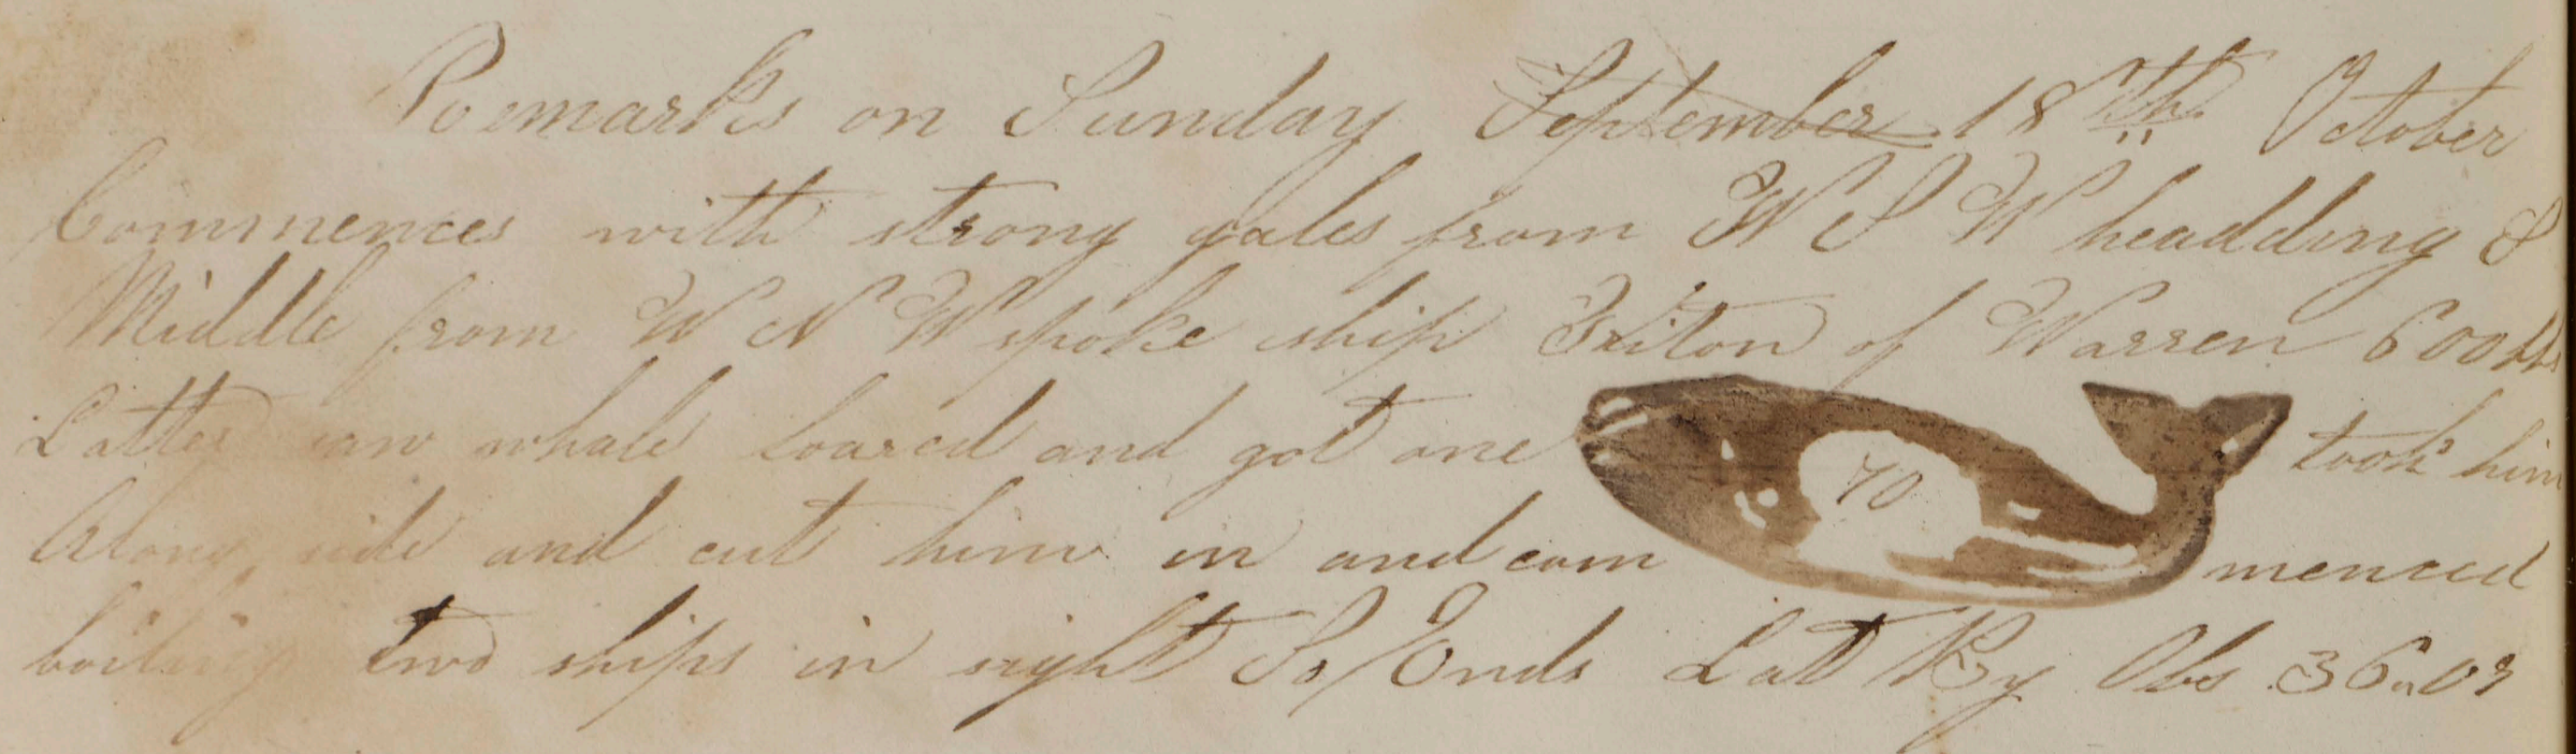 Remarks on Sunday September 18th October
Commences with strong gales from W S W headding S
Middle from W N W spoke ship Triton of Warren 600 bbls
Latter saw whales loared and got one 70 took him
Along side and cut him in and com menced
boiling two ships in sight So/Ends Lat By Obs 36..09